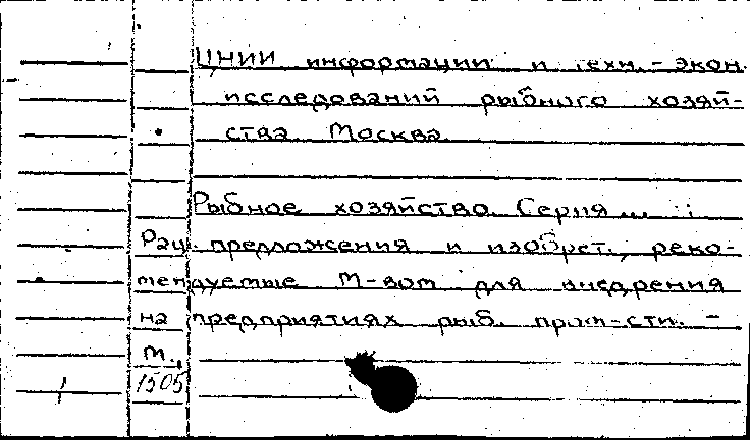 ЦНИИ информации и техн.-экон.
исследований рыбного хозяй-
ства Москва
Рыбное хозяйство. Серия
Рац. предложения и изобрет., реко-
мендуемые М-вом для внедрения
на предприятиях рыб. пром-сти. -
М.,
1505